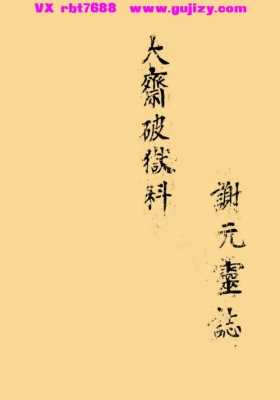 VX rbt7688   www.gujizy.com
大齋破獄科
謝元靈誌